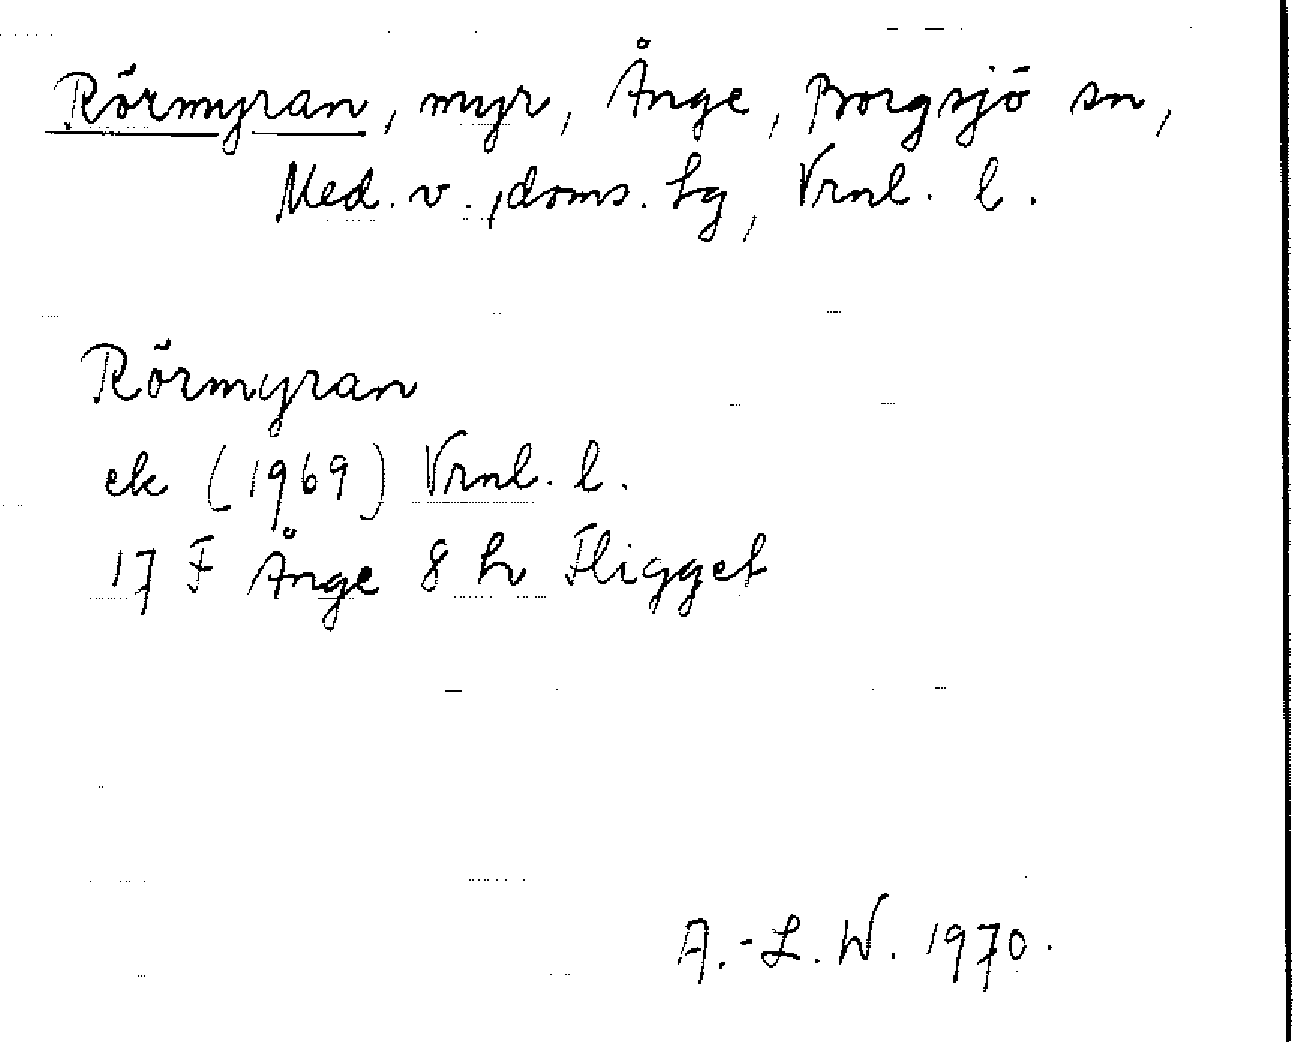 Rörmyran, myr, Ånge, Borgsjö sn,
Med. v. doms. hg, Vrnl. l.
Rörmyran
ek (1969) Vrnl. l.
17 F Ånge 8 h Fligget
A.-L. W. 1970.